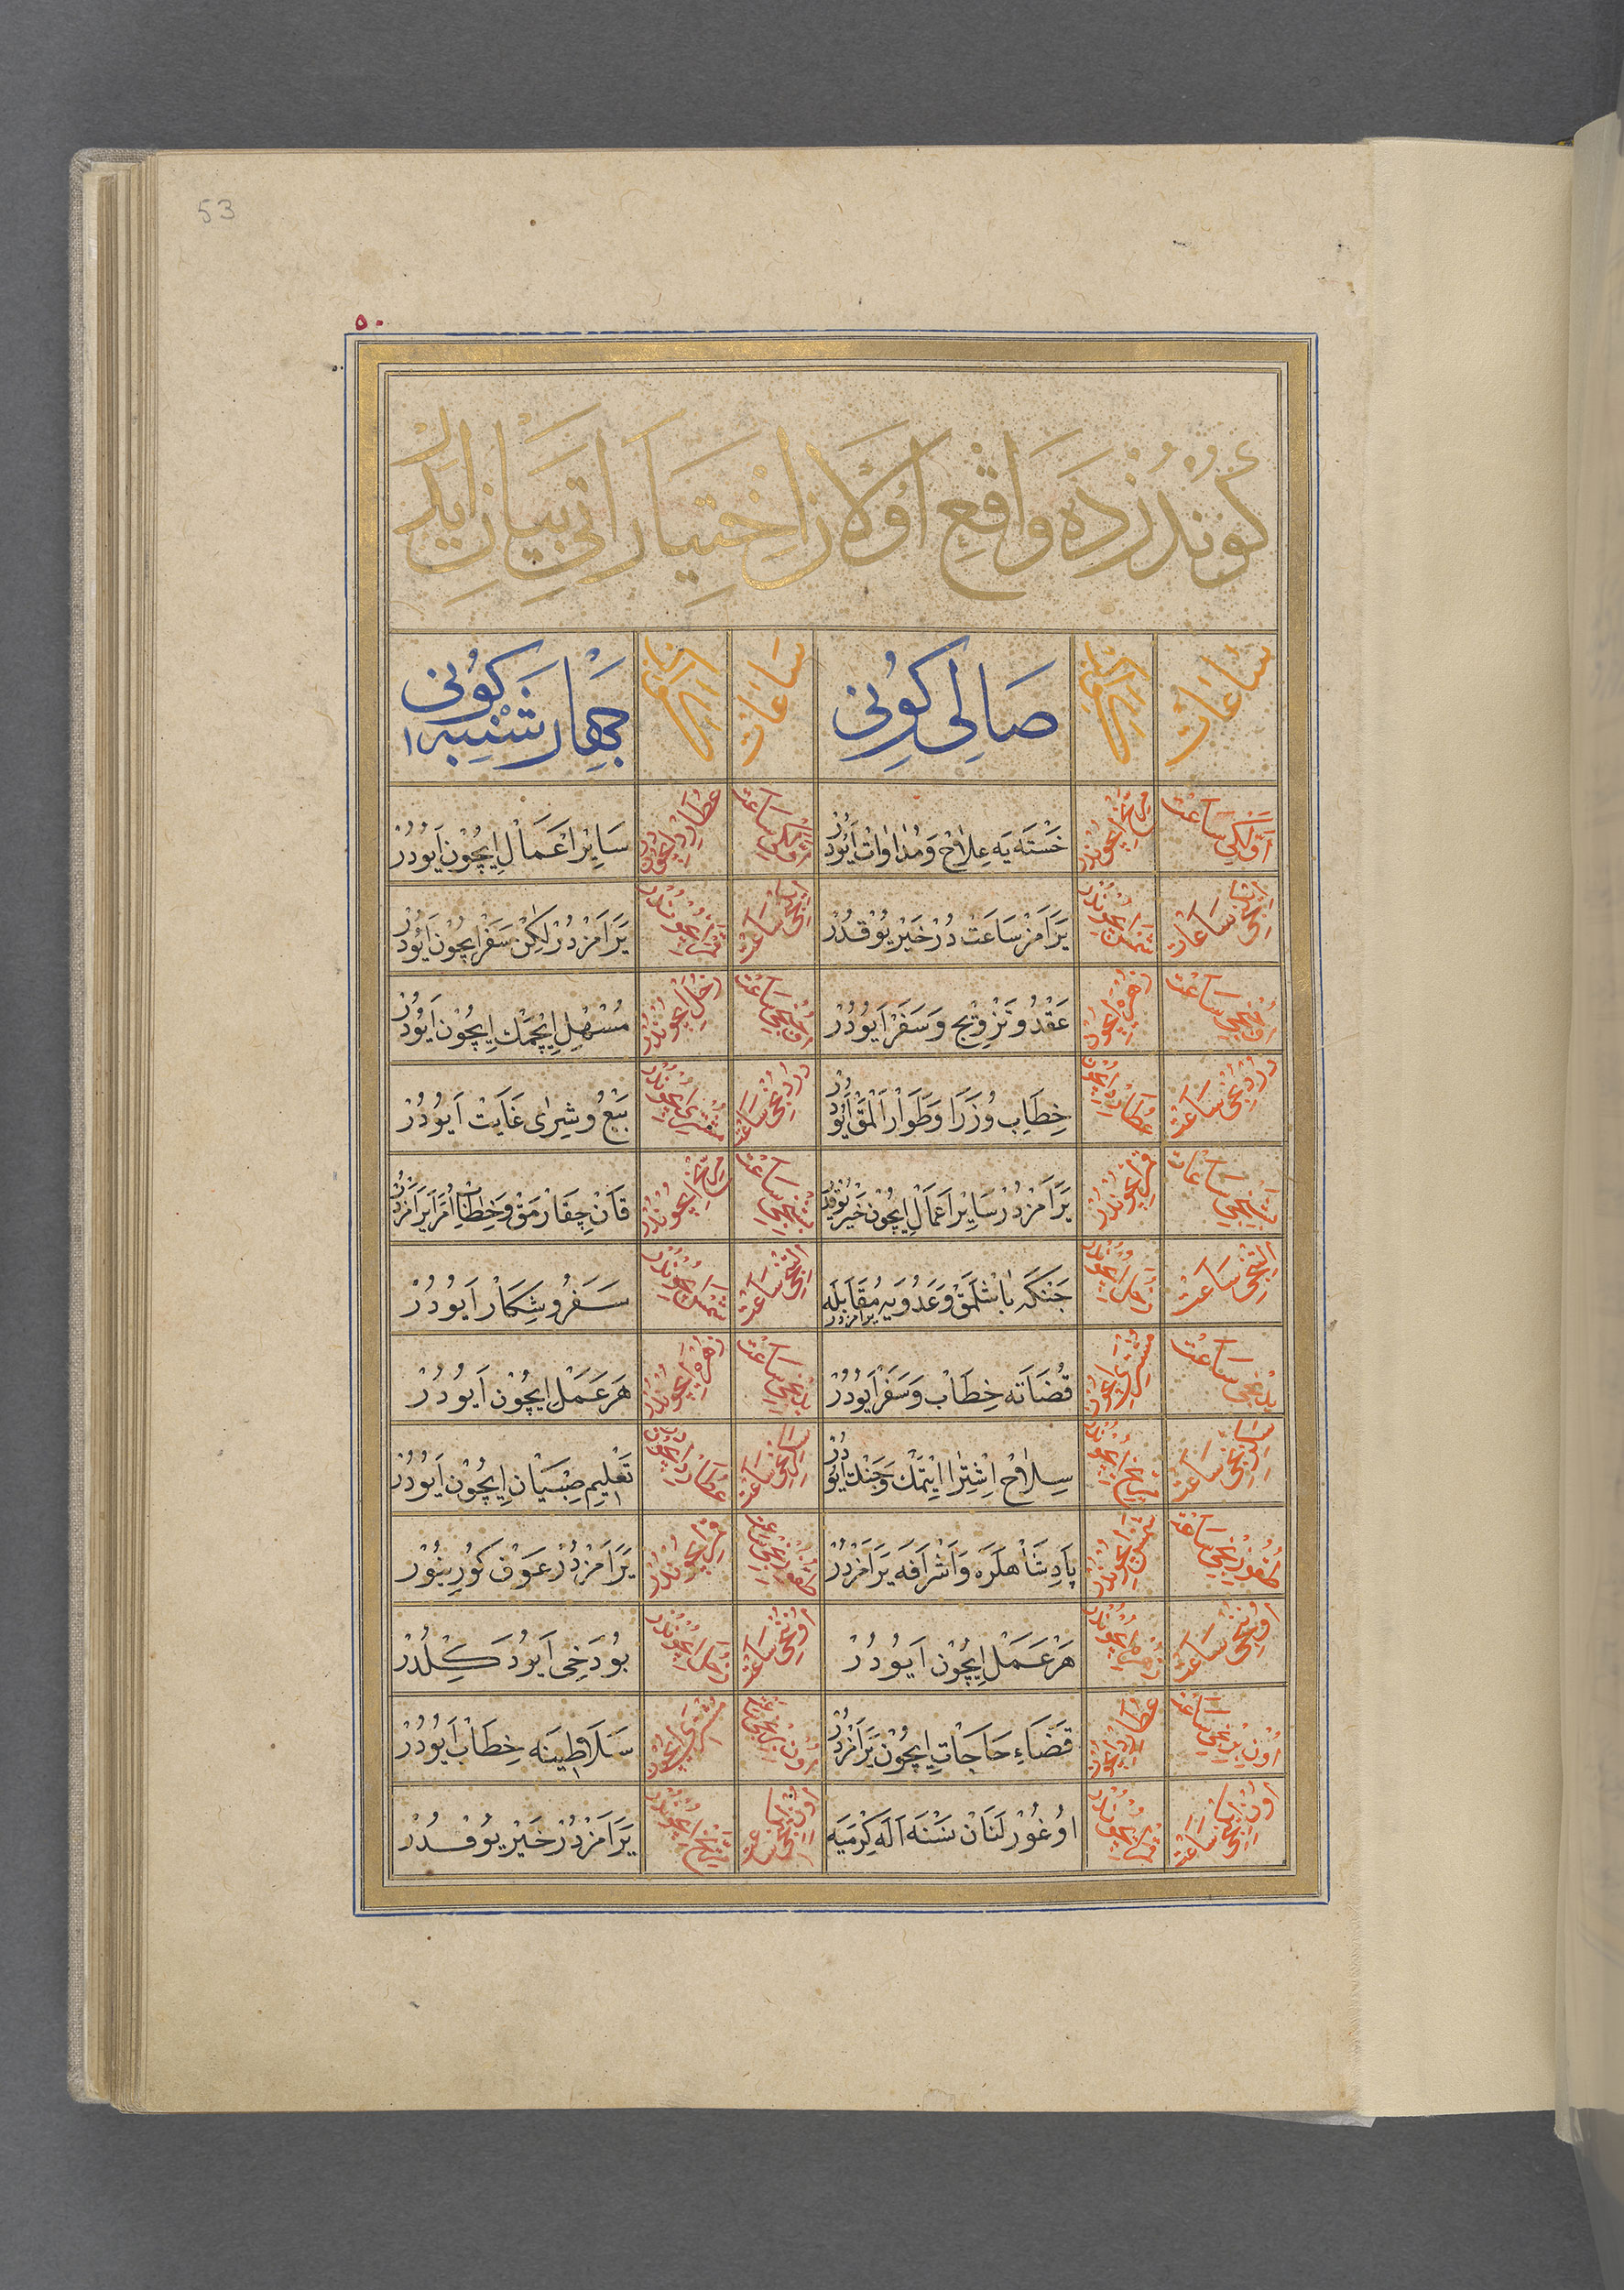 53
٥٠
كوندزده واقع اولان اختياراتى بيان ايدر
ساعات
صالى كونى
ساعات
جهار شنبه كونى
اولكى ساعت
مريخ ايچوندر
خسته يه علاج و مداوات ايودر
اولكى ساعت
عطارد ايچوندر
ساير اعمال ايچون ايودر
ايكنجى ساعات
شمس ايچوندر
يرامز ساعت در خير يوقدر
ايكنجى ساعت
قمر ايچوندر
يرامزدر لكن سفر ايچون ايودر
اوچنجى ساعت
زهره ايچون
عقد و تزويج و سفر ايودر
اوچنجى ساعت
زحل ايچوندر
مسهل ايچمك ايچون ايودر
دردنجى ساعت
عطارد ايچوندر
خطاب وزرا و طوار المق ايودر
دردنجى ساعت
مشترى ايچوندر
بيع و شرى غايت ايودر
بشنجى ساعات
قمر ايچوندر
يرامزدر ساير اعمال ايچون خير يوقدر
بشنجى ساعت
مريخ ايچوندر
قان چقارمق و خطاب امرا يرامزدر
التنجى ساعت
زحل ايچوندر
جنكه باشلمق و عدويه مقابله يرامزدر
التنجى ساعت
شمس ايچوندر
سفر و شكار ايودر
يدنجى ساعت
مشترى ايچون
قضاته خطاب و سفر ايودر
يدنجى ساعت
زهره ايچوندر
هر عمل ايچون ايودر
سكزنجى ساعت
مريخ ايچوندر
سلاح اشترا ايتمك و جنك ايودر
سكزنجى ساعت
عطارد ايچوندر
تعليم صبيان ايچون ايودر
طقوزنجى ساعت
شمس ايچوندر
پادشاهلره و اشرافه يرامزدر
طقوزنجى ساعت
قمر ايچوندر
يرامزدر عوق كورينور
اوننجى ساعت
زهره ايچوندر
هر عمل ايچون ايودر
اوننجى ساعت
زحل ايچوندر
بو دخى ايو دكلدر
اون برنجى ساعت
عطارد ايچون
قضاء حاجات ايچون يرامزدر
اون برنجى ساعت
مشترى ايچون
سلاطينه خطاب ايودر
اون ايكنجى ساعت
قمر ايچوندر
اوغورلنان نسنه اله كرميه
اون ايكنجى ساعت
مريخ ايچوندر
يرامزدر خير يوقدر